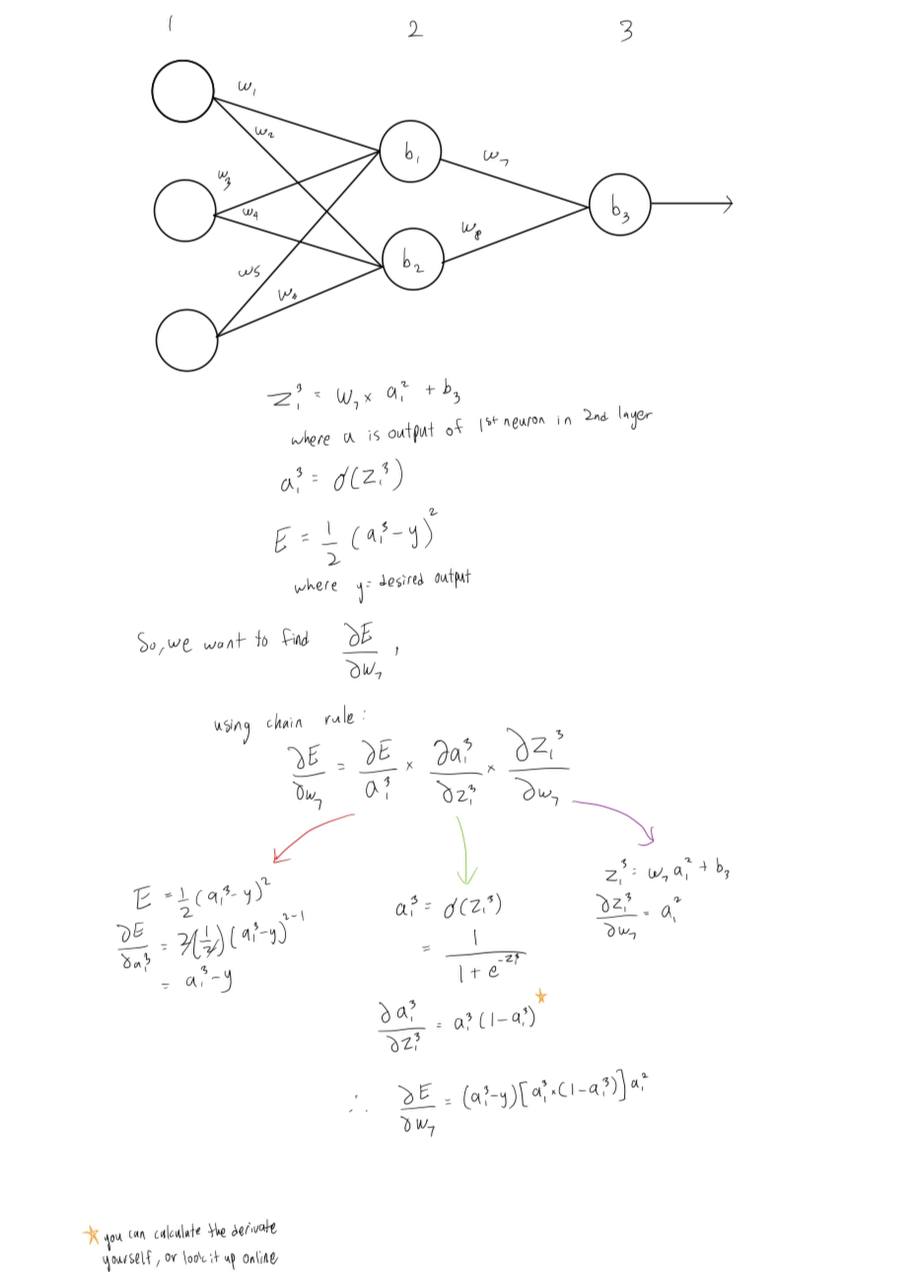 1 2 3
w₁
w₂
w₃
w₄
w₅
w₆
b₁
b₂
w₇
w₈
b₃
z₁³ = w₇ × a₁² + b₃
where a is output of 1st neuron in 2nd layer
a₁³ = σ(z₁³)
E = 1/2 (a₁³ - y)²
where y = desired output
So, we want to find ∂E/∂w₇ ,
using chain rule:
∂E/∂w₇ = ∂E/a₁³ × ∂a₁³/∂z₁³ × ∂z₁³/∂w₇
E = 1/2 (a₁³ - y)²
∂E/∂a₁³ = 2(1/2)(a₁³ - y)²⁻¹
= a₁³ - y
a₁³ = σ(z₁³)
= 1/(1 + e^(-z₁³))
∂a₁³/∂z₁³ = a₁³ (1 - a₁³)
z₁³ = w₇ a₁² + b₃
∂z₁³/∂w₇ = a₁²
∴ ∂E/∂w₇ = (a₁³ - y)[a₁³ × (1 - a₁³)] a₁²
you can calculate the derivate
yourself, or look it up online